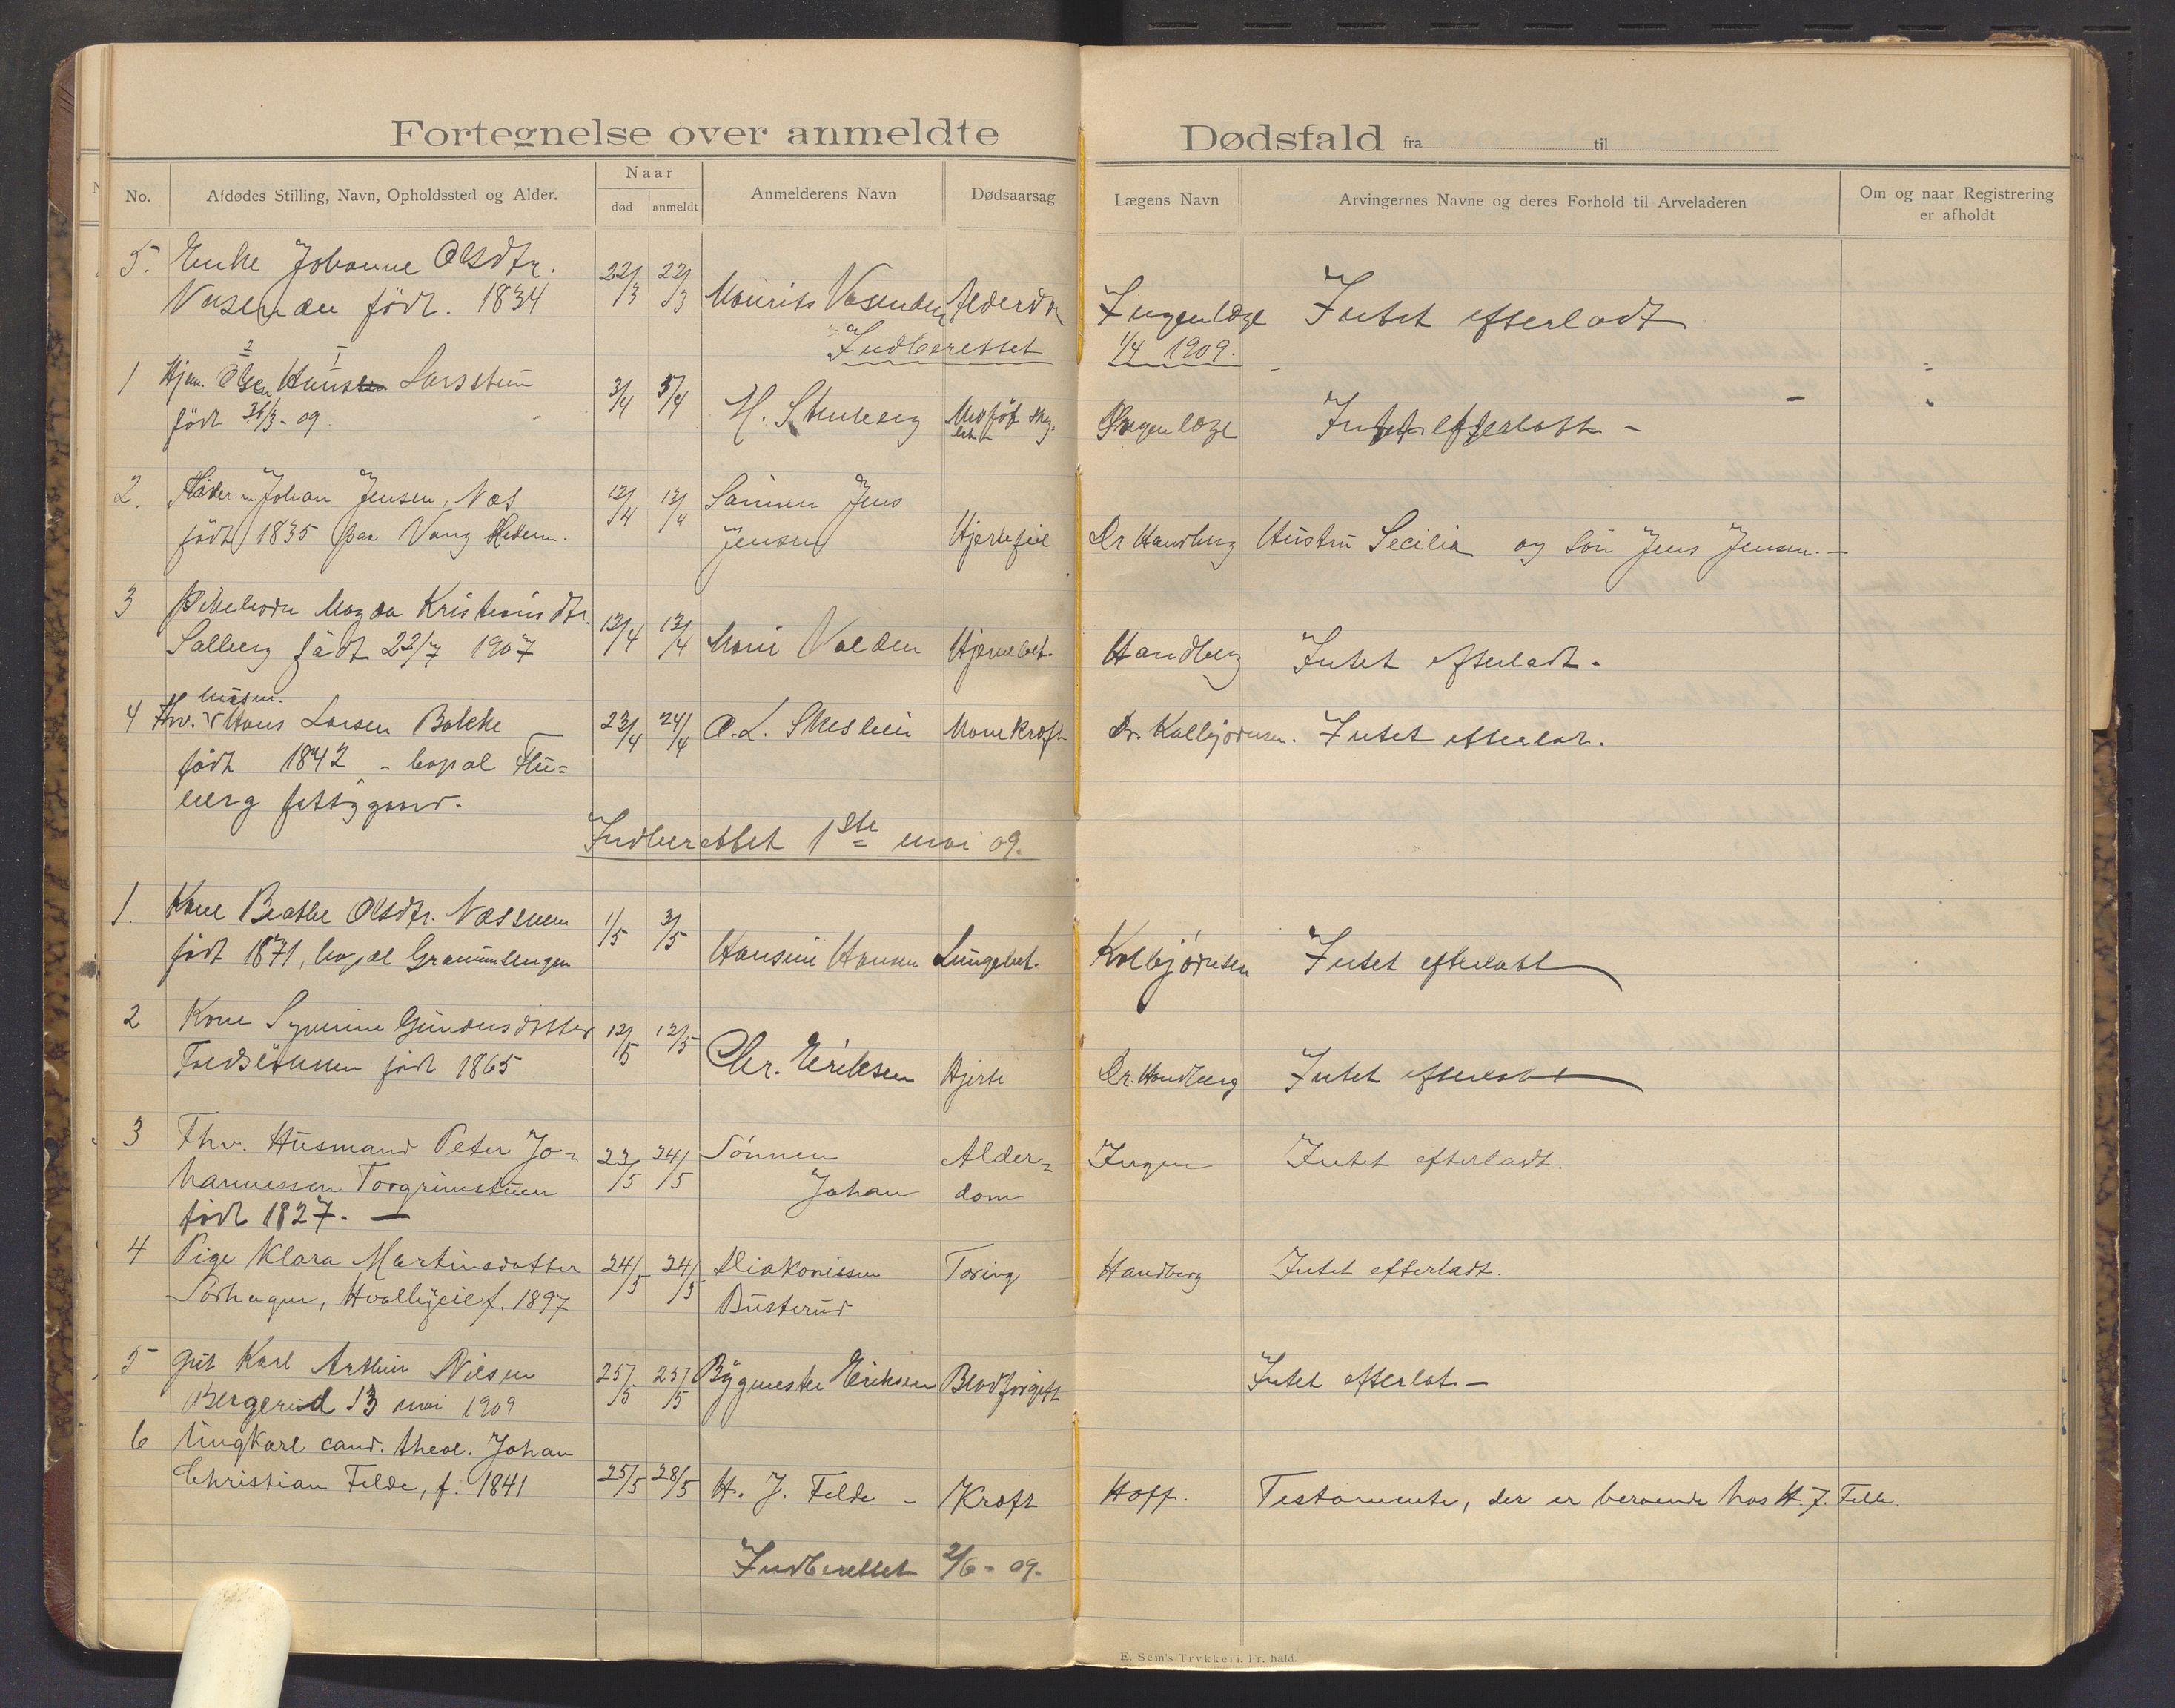 Fortegnelse over anmeldte Dødsfald fra til
No.
Afdødes Stilling, Navn, Opholdssted og Alder.
Naar
død
anmeldt
Anmelderens Navn
Dødsaarsag
Lægens Navn
Arvingernes Navne og deres Forhold til Arveladeren
Om og naar Registrering
er afholdt
5. Enke Johanne Olsdtr.
født. 1834
22/3 22/3 Maurits Vasenden Alderdom
Ingen læge Intet efterladt
Indberettet 1/4 1909.
1 Olsen Hans Larsstuen
født 31/3-09
3/4 5/4 H. Stenberg Medfødt
Ingen læge Intet efterladt -
2. Johan Jensen, Næs
født 1835 paa Vang Hedem.
12/4 13/4 Sønnen Jens
Jensen Hjertefeil Dr. Handberg Hustru Secilia og Søn Jens Jensen. -
3 Pikebarn Magda Kristiansdtr.
Salberg født 22/7 1907
12/4 13/4 Marie Valden Hjernebet. Handberg Intet efterladt.
4 Fhv. husm. Hans Larsen Bakke
født 1842 - bopæl
fattiggaard.
23/4 24/4 O. L. Skeslien Mavekræft Dr. Kolbjørnsen. Intet efterlat.
Indberettet 1ste mai 09.
1. Kone Beathe Olsdtr. Næssveen
født 1871, bopæl
1/5 3/5 Hansine Hansen Lungebet. Kolbjørnsen Intet efterladt
2 Kone Syverine Gundersdatter
født 1865
12/5 12/5 Chr. Eriksen Hjerte Dr. Handberg Intet efterladt
3 Fhv. Husmand Peter Jo-
hannessen Torgrimstuen
født 1827. -
23/5 24/5 Sønnen
Johan
Alder-
dom
Ingen Intet efterladt.
4 Pige Klara Martinsdatter
Sørhagen, f. 1897
24/5 24/5 Diakonissen
Busterud
Tæring Handberg Intet efterladt.
5 Gut Karl Arthur Nilsen
Bergerud 13 mai 1909
25/5 25/5 Bygmester Eriksen Blodforgift Intet efterlat -
6 Ungkarl cand. theol. Johan
Christian Felde, f. 1841
25/5 28/5 H. J. Felde - Kræft Hoff. Testamente, der er beroende hos H. J. Felde.
Indberettet 2/6-09.
E. Sem's Trykkeri, Fr. hald.